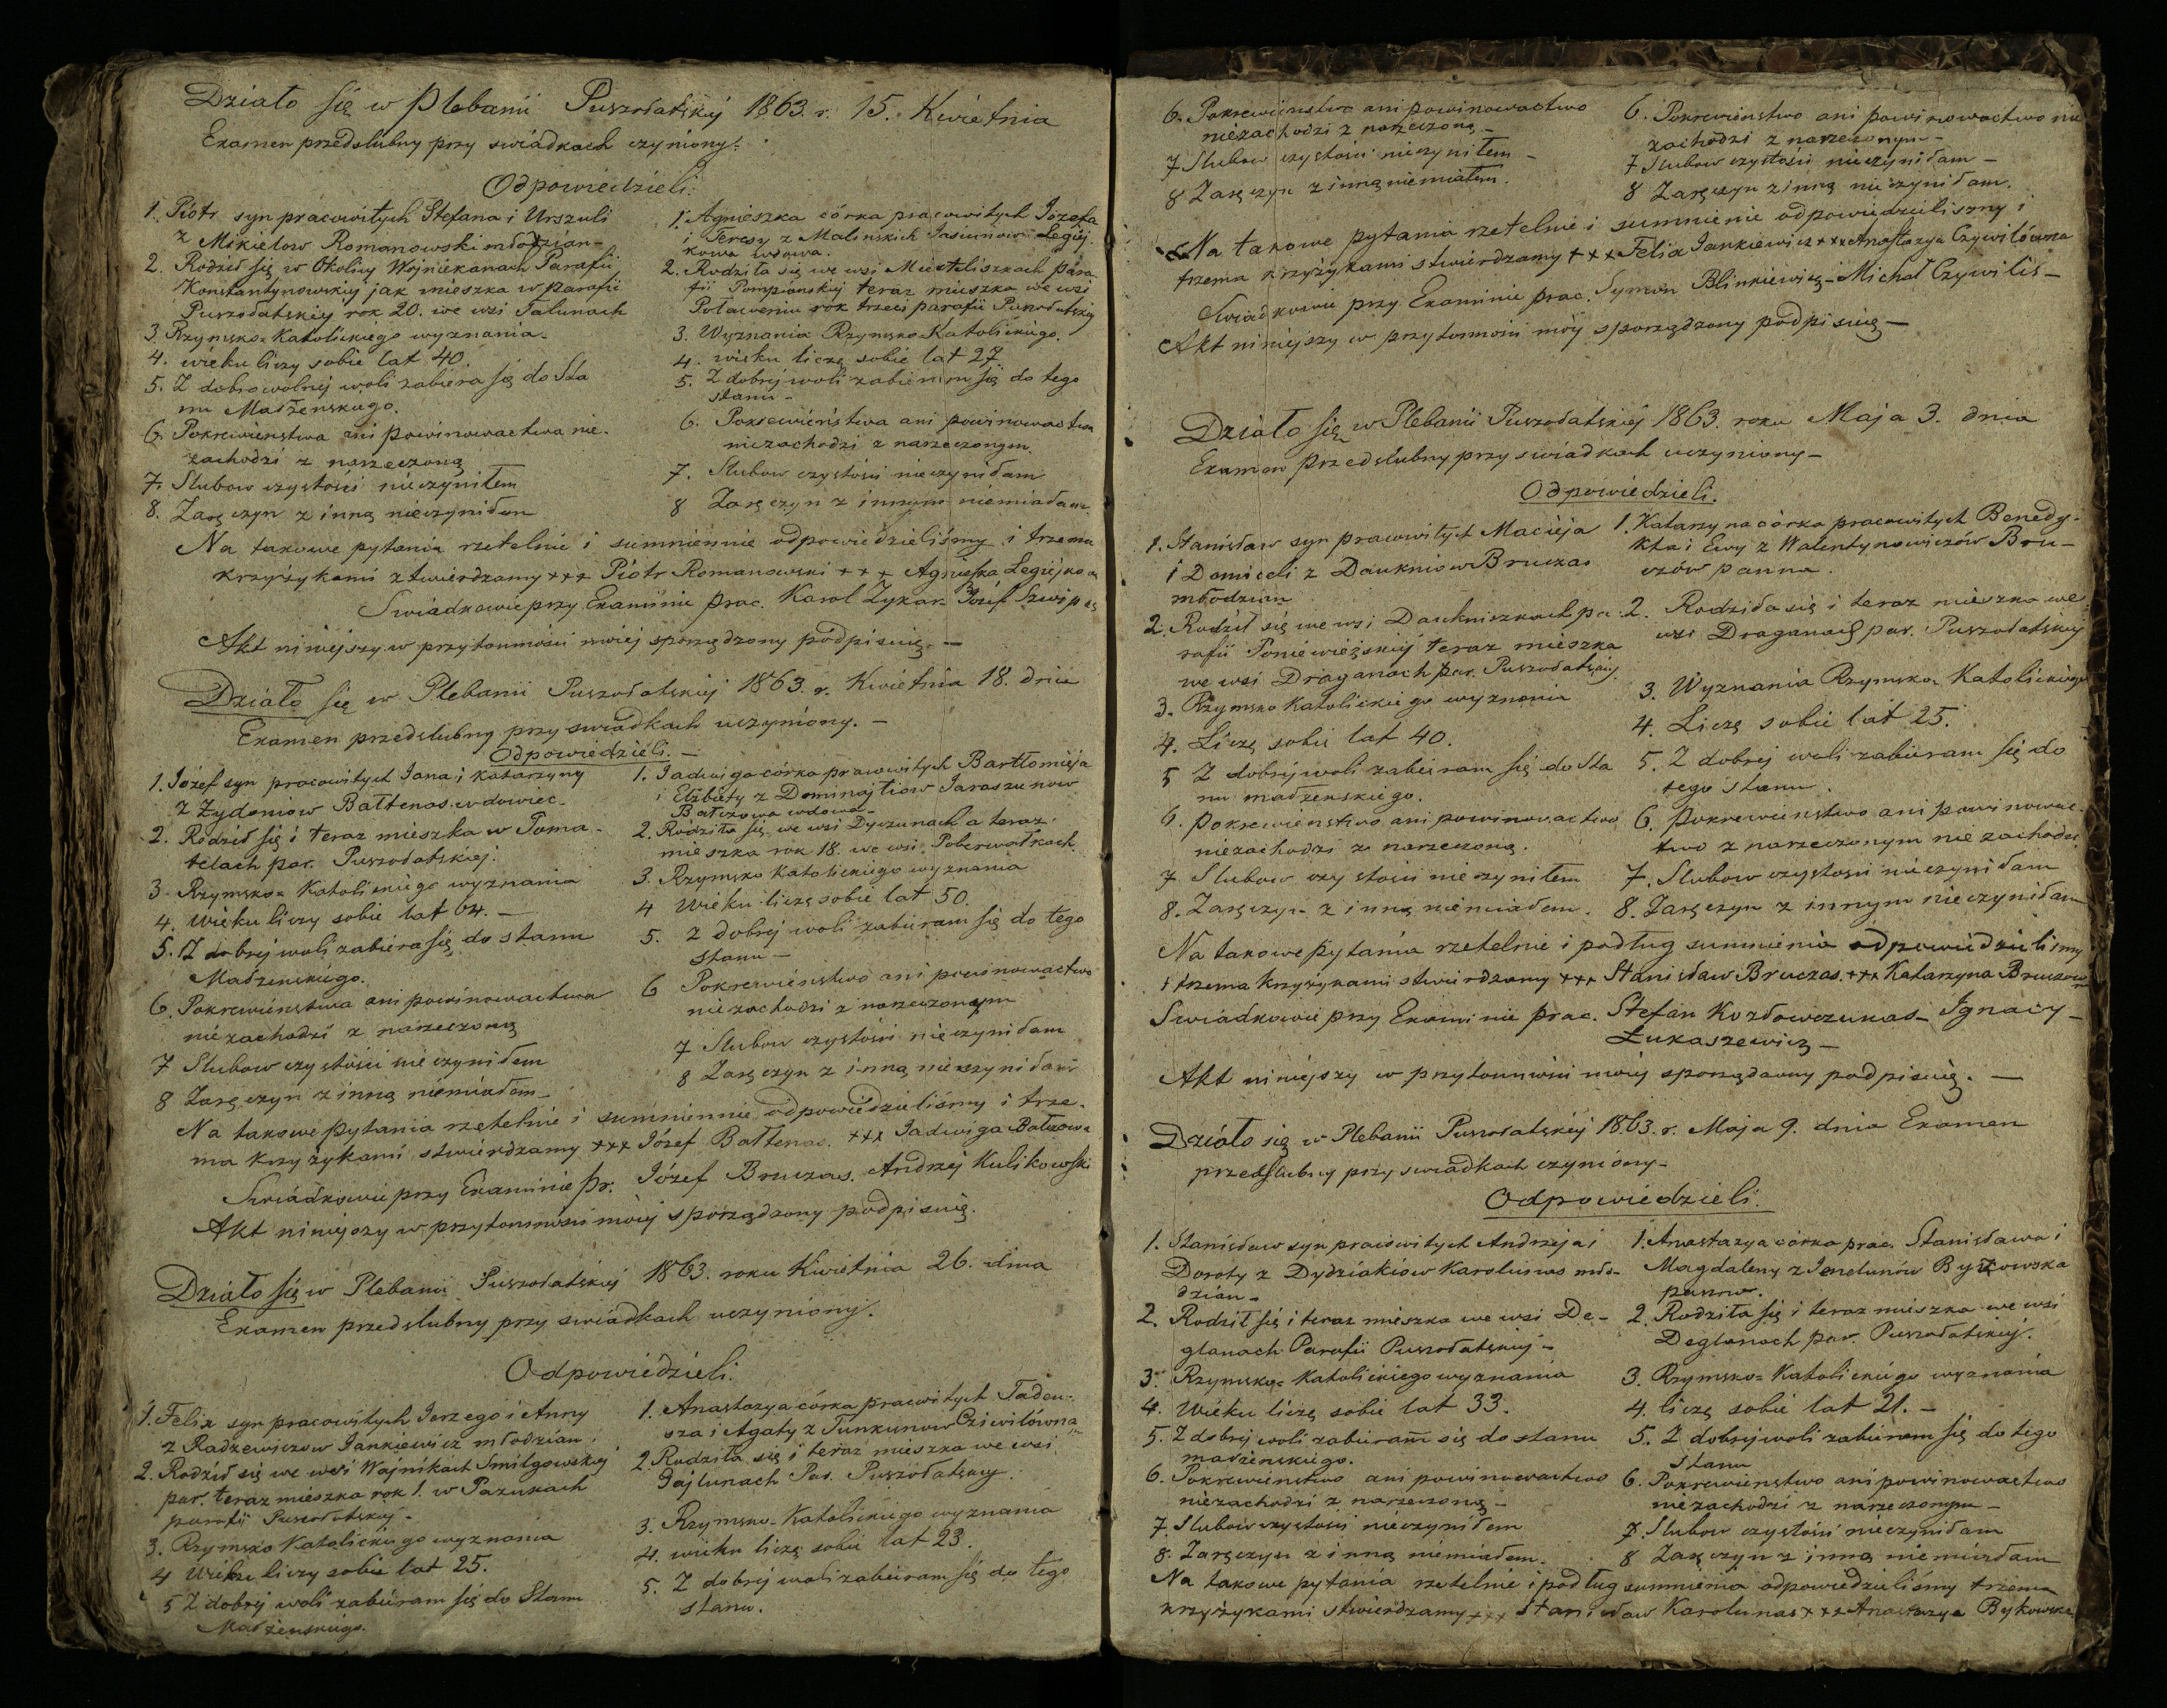 Działo się w Plebanii Puszołatskiéj 1863. r. 15. Kwietnia
Examen przedslubny przy swiadkach czyniony.
Odpowiedzieli.
1. Piotr syn pracowitych Stefana i Urszuli
z Mikielow Romanowski młodzian-
2. Rodził się w Okolicy Wojniekanach Parafii
Konstantynowskiej jak mieszka w parafii
Puszołatskiej rok 20. we wsi Talunach
3. Rzymsko-Katolickiego wyznania-
4. wieku liczy sobie lat 40.
5. Z dobrowolnéj woli zabiera się do Sta
nu Małżenskiego.
6. Pokrewienstwa ani powinowactwa nie-
zachodzi z narzeczoną
7. Slubow czystości nieczyniłem
8. Zaręczyn z inną nieczyniłem
1. Agnieszka córka pracowitych Józefa
i Teresy z Malinskich Jasiunow Legiej-
kowa wdowa.
2. Rodziła się we wsi Mieteliszkach para-
fii Pompianskiej teraz mieszka we wsi
Poławeniu rok trzeci parafii Puszołatskiej
3. Wyznania Rzymsko Katolickiego.
4. wieku liczę sobie lat 27.
5. Z dobrej woli zabieram się do tego
stanu-
6. Pokrewieństwa ani powinowactwa
niezachodzi z narzeczonym.
7. Slubow czystości nieczyniłam
8 Zaręczyn z innym niemiałam.
Na takowe pytania rzetelnie i sumniennie odpowiedzieliśmy i trzema
krzyżykami ztwierdzamy +++ Piotr Romanowski +++ Agnieszka Legiejkowa
Swiadkowie przy Examinie prac. Karol Zykar- Józef Szwipas
Akt niniejszy w przytomności mojej sporządzony podpisuię.-
Działo się w Plebanii Puszołatskiej 1863. r. Kwietnia 18. dnia
Examen przedslubny przy swiadkach uczyniony.-
Odpowiedzieli.-
1. Józef syn pracowitych Jana i Katarzyny
z Żydoniow Bałtenas wdowiec-
2. Rodził się i teraz mieszka w Toma-
telach par. Puszołatskiej.
3. Rzymsko-Katolickiego wyznania
4. Wieku liczy sobie lat 64.-
5. Z dobrej woli zabiera się do stanu
Małżenskiego.
6. Pokrewienstwa ani powinowactwa
niezachodzi z narzeczoną
7 Slubow czystości nieczyniłem
8 Zaręczyn z inną niemiałem-
1. Jadwiga córka pracowitych Bartłomieja
i Elżbiety z Dominajtiow Jaraszunow
Bałczowa wdowa-
2. Rodziła się we wsi Dyczunach a teraz
mieszka rok 18. we wsi Poberwołkach.
3. Rzymsko Katolickiego wyznania
4 Wieku liczę sobie lat 50.
5. Z dobrej woli zabieram się do tego
stanu-
6 Pokrewieństwo ani powinowactwo
niezachodzi z narzeczonym
7 Slubow czystości nieczyniłam
8 Zaręczyn z inną nieczyniłam
Na takowe pytania rzetelnie i sumniennie odpowiedzieliśmy i trze-
ma krzyżykami stwierdzamy +++ Józef Bałtenas. +++ Jadwiga Bałczowa
Swiadkowie przy Examinie pr. Józef Bruczas. Andrzej Kulikowski
Akt niniejszy w przytomności mojej sporządzony podpisuię.
Działo się w Plebanii Puszołatskiej 1863. roku Kwietnia 26. dnia
Examen przedslubny przy swiadkach uczyniony.
Odpowiedzieli.
1. Felix syn pracowitych Jerzego i Anny
z Radzewiczow Jankiewicz młodzian.
2. Rodził się we wsi Wojnikach Smilgowskiej
par. teraz mieszka rok 1. w Pazukach
parafii Puszołatskiej-
3. Rzymsko Katolickiego wyznania
4 Wieku liczy sobie lat 25.
5 Z dobrej woli zabieram się do Stanu
Małżenskiego.
1. Anastazya córka pracowitych Tadeu-
sza i Agaty z Tunkunow Cziwilówna
2. Rodziła się i teraz mieszka we wsi
Gajlunach Par. Puszołatskiej.
3. Rzymsko-Katolickiego wyznania
4. wieku liczę sobie lat 23.
5. Z dobrej woli zabieram się do tego
stanu.
6. Pokrewienstwo ani powinowactwo
niezachodzi z narzeczoną-
7 Slubow czystości nieczyniłem-
8 Zaręczyn z inną niemiałem.
6. Pokrewieństwo ani powinowactwo nie
zachodzi z narzeczonym-
7 Slubow czystości nieczyniłam-
8 Zaręczyn z inną nieczyniłam.
Na takowe pytania rzetelnie i sumnienie odpowiedzieliszmy i
trzema krzyżykami stwierdzamy +++ Felix Jankiewicz +++ Anastazya Czywilówna
Swiadkowie przy Examinie prac. Symon Blinkiewicz- Michał Czywilis-
Akt niniejszy w przytomności mojéj sporządzony podpisuię-
Działo się w Plebanii Puszołatskiéj 1863. roku Maja 3. dnia
Examen przedslubny przy swiadkach uczyniony-
Odpowiedzieli.
1. Stanisław syn pracowitych Macieja
i Domiceli z Daukniow Bruczas
młodzian
2. Rodził się we wsi Daukniszkach pa-
rafii Poniewieżskiéj teraz mieszka
we wsi Draganach par. Puszołatskiej.
3. Rzymsko Katolickiego wyznania
4. Liczę sobie lat 40.
5 Z dobréj woli zabieram się do Sta
nu małżenskiego.
6. Pokrewienstwo ani powinowactwo
niezachodzi z narzeczoną.
7 Slubow czystości nieczyniłem
8. Zaręczyn z inną niemiałem.
1. Katarzyna córka pracowitych Benedy-
kta i Ewy z Walentynowiczów Bru-
czów panna.
2. Rodziła się i teraz mieszka we
wsi Draganach par. Puszołatskiej
3. Wyznania Rzymsko Katolickiego
4. Liczę sobie lat 25.
5. Z dobrej woli zabieram się do
tego stanu.
6. Pokrewienstwo ani powinowac-
two z narzeczonym niezachodzi
7. Slubow czystości nieczyniłam
8. Zaręczyn z innym nieczyniłam
Na takowe pytania rzetelnie i podług sumnienia odpowiedzielismy
i trzema krzyżykami stwierdzamy +++ Stanisław Bruczas. +++ Katarzyna Bruczow
Swiadkowie przy Examinie prac. Stefan Kozłowczunas- Ignacy-
Łukaszewicz-
Akt niniejszy w przytomności mojej sporządzony podpisuię.-
Działo się w Plebanii Puszołatskiéj 1863. r. Maja 9. dnia Examen
przedslubny przy swiadkach czyniony-
Odpowiedzieli.
1. Stanisław syn pracowitych Andrzeja i
Doroty z Dydziakiow Karolunas mło-
dzian-
2. Rodził się i teraz mieszka we wsi De-
glanach Parafii Puszołatskiej-
3. Rzymsko-Katolickiego wyznania
4. Wieku liczę sobie lat 33.
5. Z dobrej woli zabieram się do stanu
małżenskiego.
6. Pokrewienstwo ani powinowactwo
niezachodzi z narzeczoną-
7. Slubow czystości nieczyniłem
8. Zaręczyn z inną niemiałem.
1. Anastazya córka prac. Stanisława i
Magdaleny z Jenelunów Bykowska
panna.
2. Rodziła się i teraz mieszka we wsi
Deglanach par. Puszołatskiej.
3. Rzymsko-Katolickiego wyznania
4. liczę sobie lat 21.-
5. Z dobrej woli zabieram się do tego
Stanu
6. Pokrewienstwo ani powinowactwo
niezachodzi z narzeczonym-
7. Slubow czystości nieczyniłam
8 Zaręczyn z inną niemiałam
Na takowe pytania rzetelnie i podług sumnienia odpowiedzieliśmy trzema
krzyżykami stwierdzamy +++ Stanisław Karolunas +++ Anastazya Bykowska